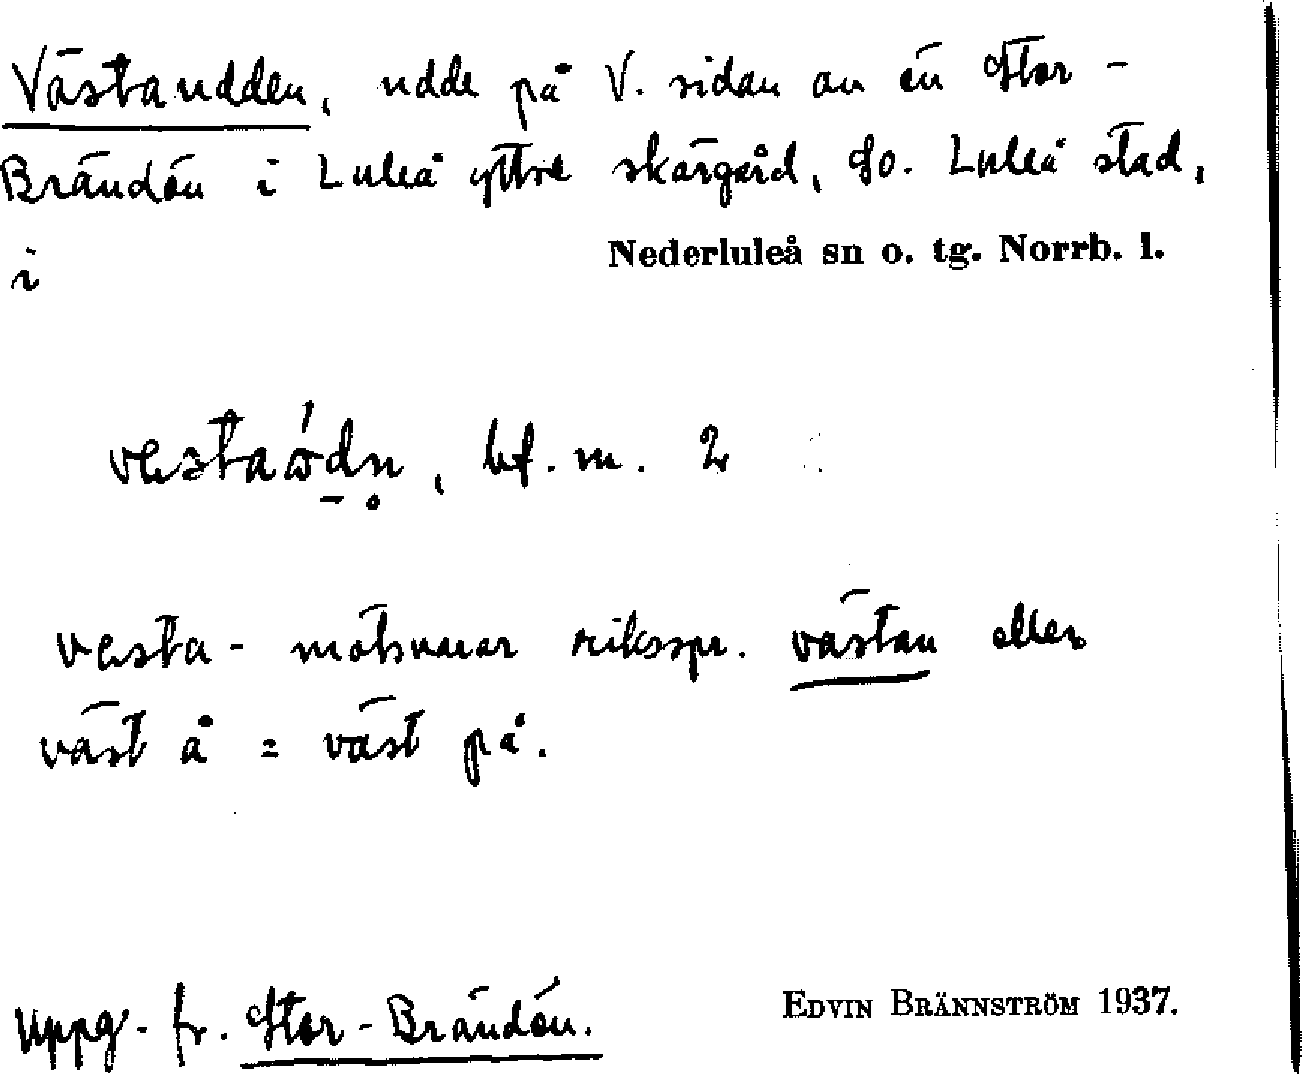 Västanudden, udde på V. sidan av ön Stor-
Brändön i Luleå yttre skärgård, SO. Luleå stad,
i Nederluleå sn o. tg. Norrb. l.
vestaώdn̥, bf. m. 2
vesta- motsvarar riksspr. västan eller
väst å = väst på.
Uppg. fr. Stor-Brändön.
EDVIN BRÄNNSTRÖM 1937.